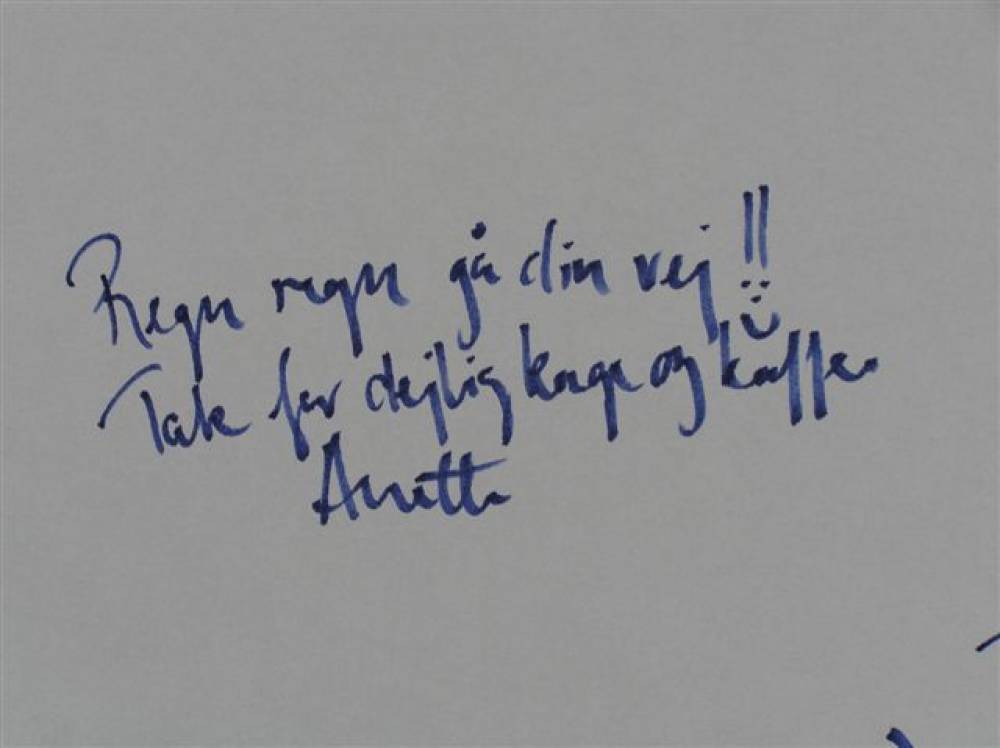 Regn regn gå din vej!!
Tak for dejlig kage og kaffe.
Anette